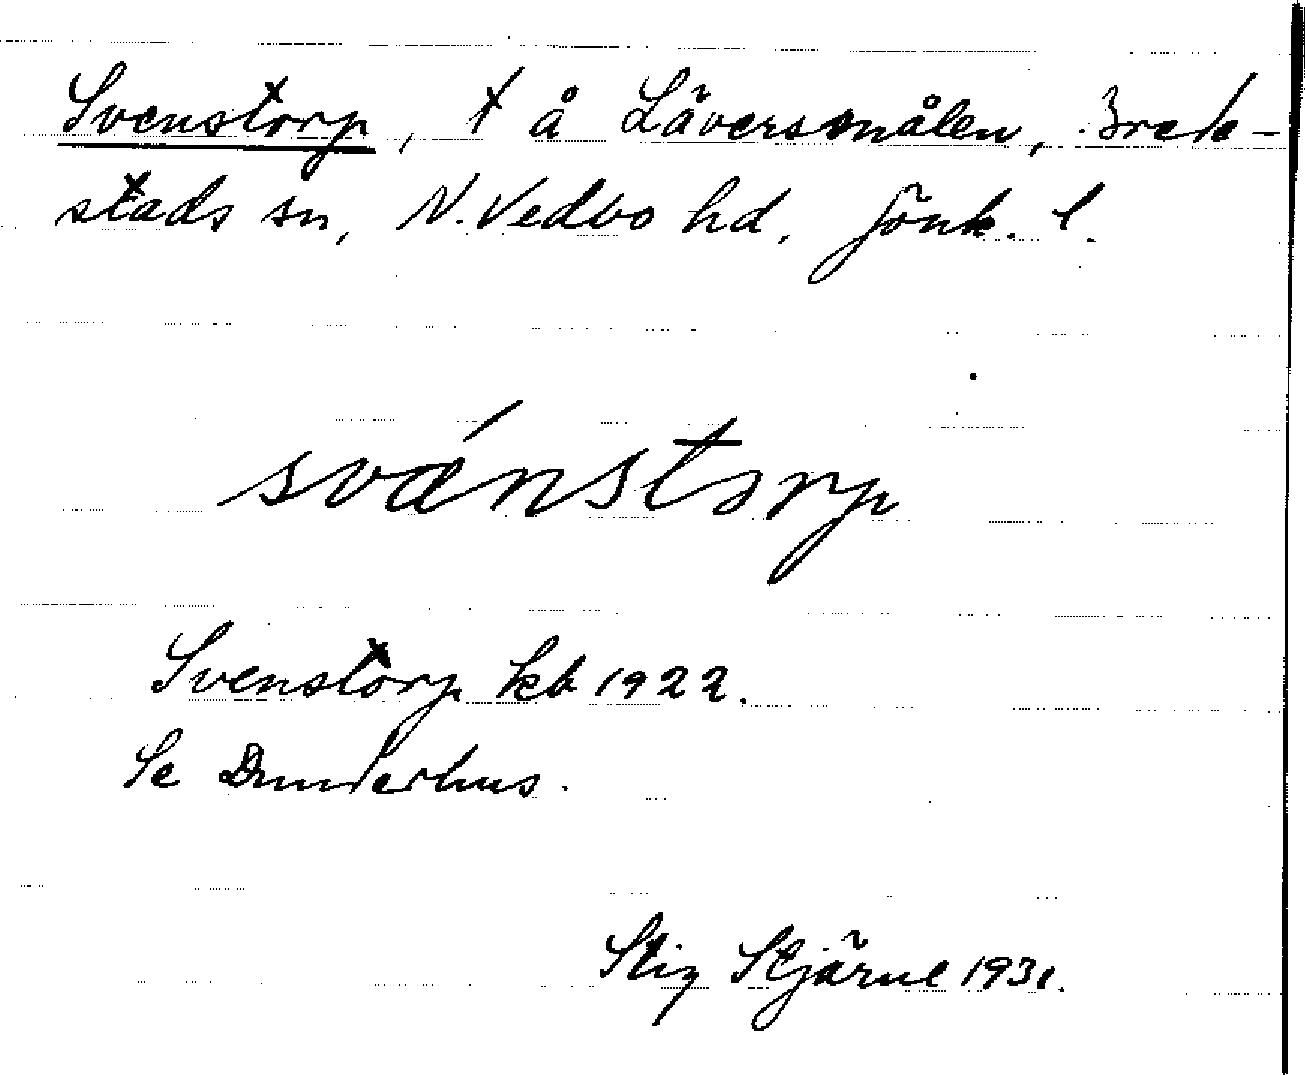 Svenstorp, t å Läversmålen, Brede-
stads sn, N. Vedbo hd, Jönk. l.
svǽnstorp
Svenstorp kb 1922.
Se Dunderhus.
Stig Stjärne 1931.